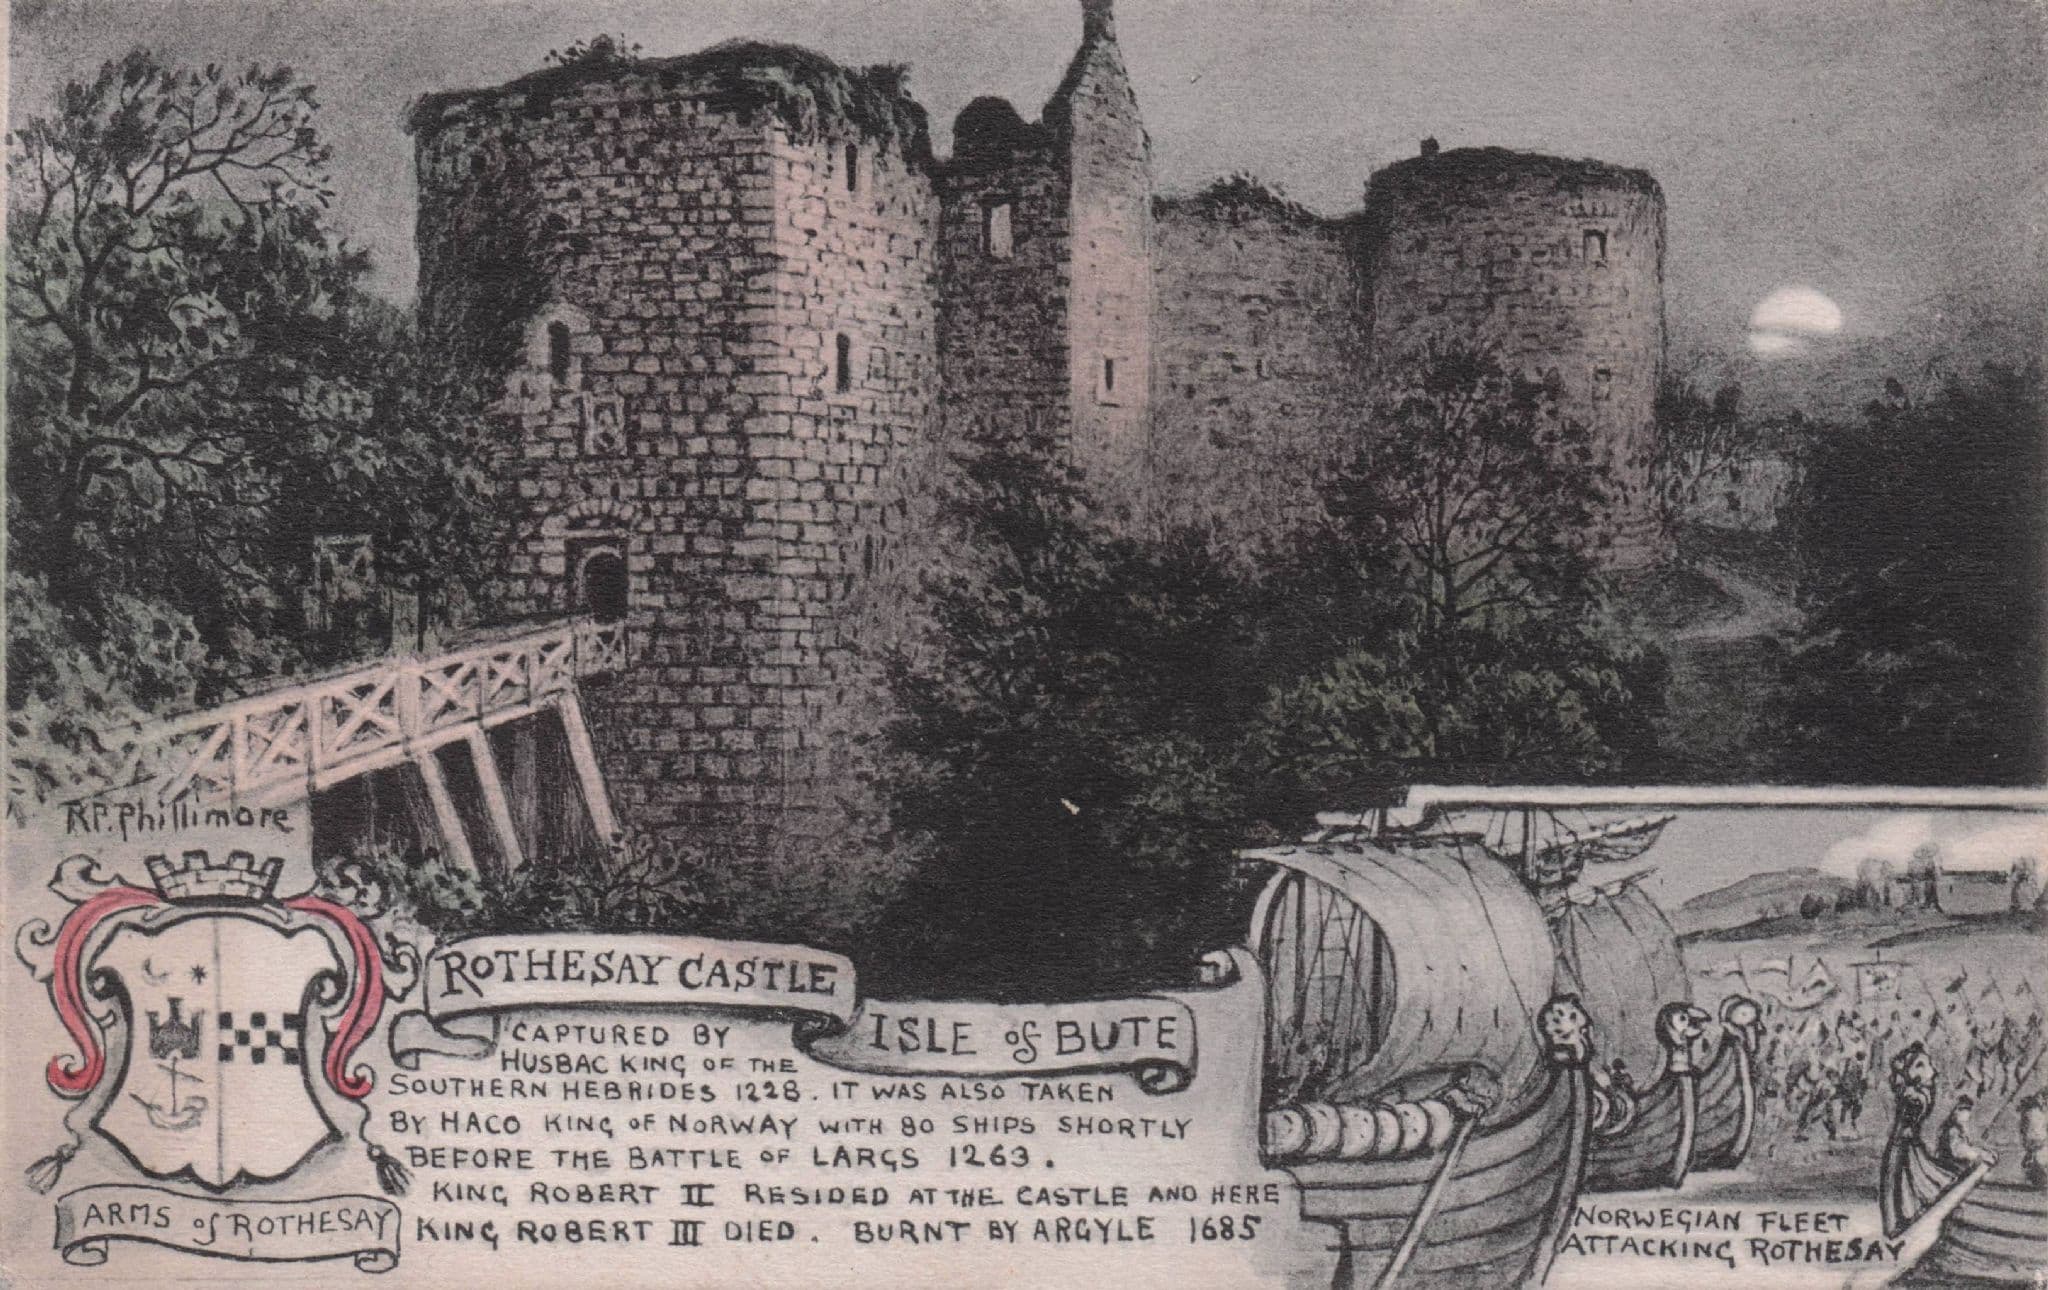 R.P. Phillimore
ROTHESAY CASTLE
ISLE of BUTE
CAPTURED BY
HUSBAC KING OF THE
SOUTHERN HEBRIDES 1228. IT WAS ALSO TAKEN
BY HACO KING OF NORWAY WITH 80 SHIPS SHORTLY
BEFORE THE BATTLE OF LARGS 1263.
KING ROBERT II RESIDED AT THE CASTLE AND HERE
KING ROBERT III DIED. BURNT BY ARGYLE 1685
ARMS of ROTHESAY
NORWEGIAN FLEET
ATTACKING ROTHESAY